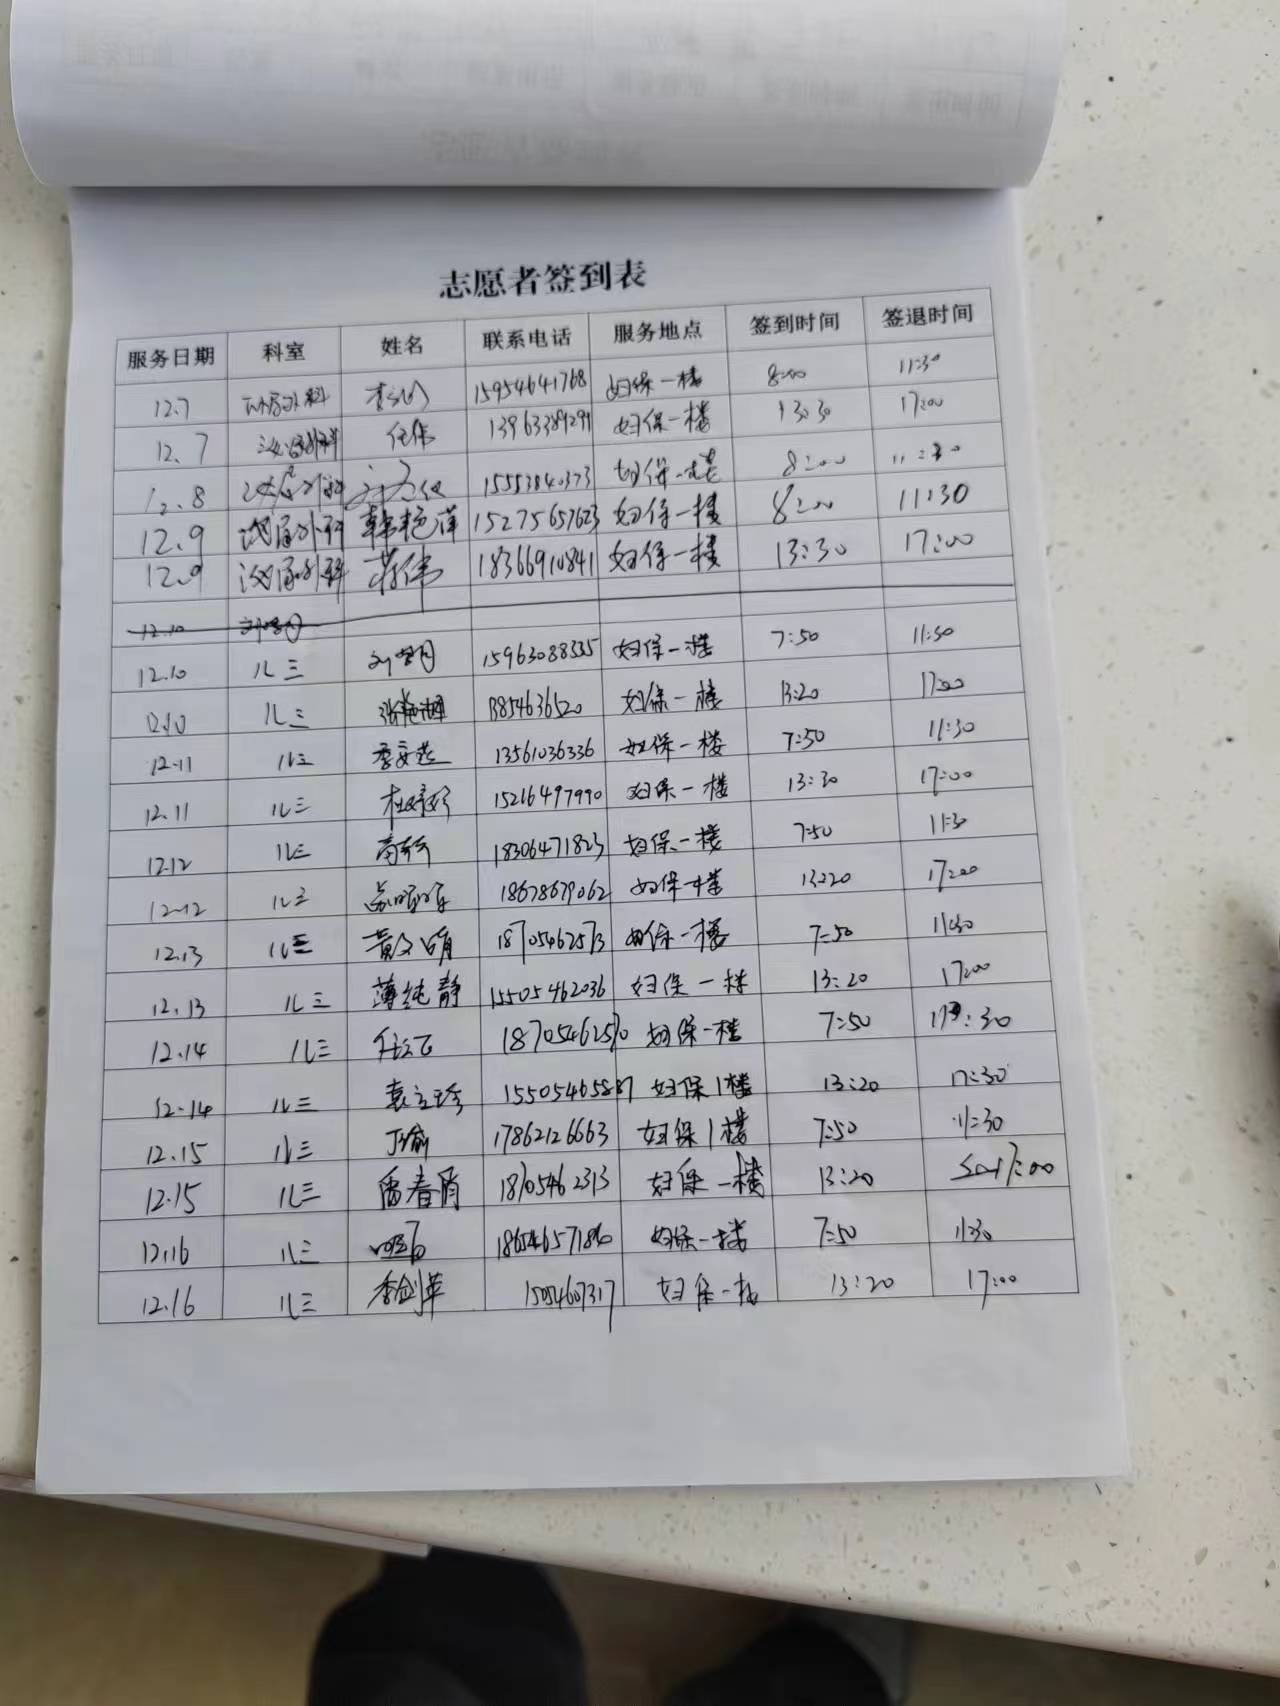 志愿者签到表
服务日期 科室 姓名 联系电话 服务地点 签到时间 签退时间
12.7 15954641768 妇保一楼 8:00 11:30
12.7 泌尿外科 任伟 13963389291 妇保一楼 13:30 17:00
12.8 泌尿外科 15553840373 妇保一楼 8:00 11:30
12.9 泌尿外科 韩艳萍 15275657623 妇保一楼 8:00 11:30
12.9 泌尿外科 蒋伟 18366910841 妇保一楼 13:30 17:00
12.10
12.10 儿三 15963088335 妇保一楼 7:50 11:30
儿三 妇保一楼 13:20 17:00
12.11 儿三 13561036336 妇保一楼 7:50 11:30
12.11 儿三 15216497990 妇保一楼 13:30 17:00
12.12 儿三 18306471823 妇保一楼 7:50 11:30
12.12 儿三 18678679062 妇保一楼 13:20 17:00
12.13 儿三 18705462573 妇保一楼 7:50 11:30
12.13 儿三 薄纯静 15505462036 妇保一楼 13:20 17:00
12.14 儿三 18705462570 妇保一楼 7:50
12.14 儿三 袁立珍 妇保1楼 13:20 17:30
12.15 儿三 丁瑜 17862126663 妇保1楼 7:50 11:30
12.15 儿三 雷春肖 18705462313 妇保一楼 13:20 17:00
12.16 儿三 妇保一楼 7:50 11:30
12.16 儿三 李剑苹 妇保一楼 13:20 17:00